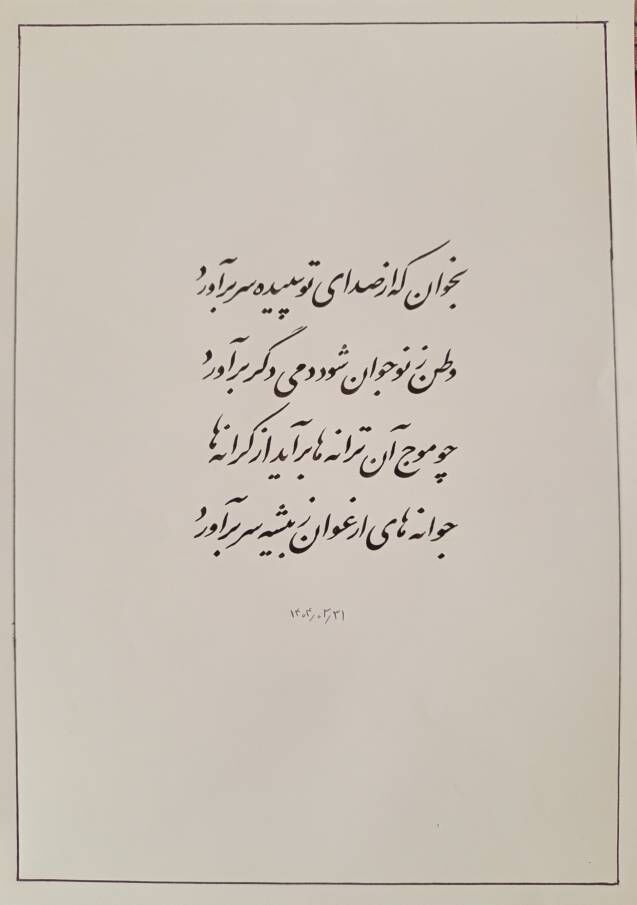 بخوان که از صدای تو سپیده سر برآورد
وطن ز نو جوان شود دمی دگر برآورد
چو موج آن ترانه ها برآید از کرانه ها
جوانه های ارغوان ز بیشه سر برآورد
۱۴۰۴/۰۳/۳۱